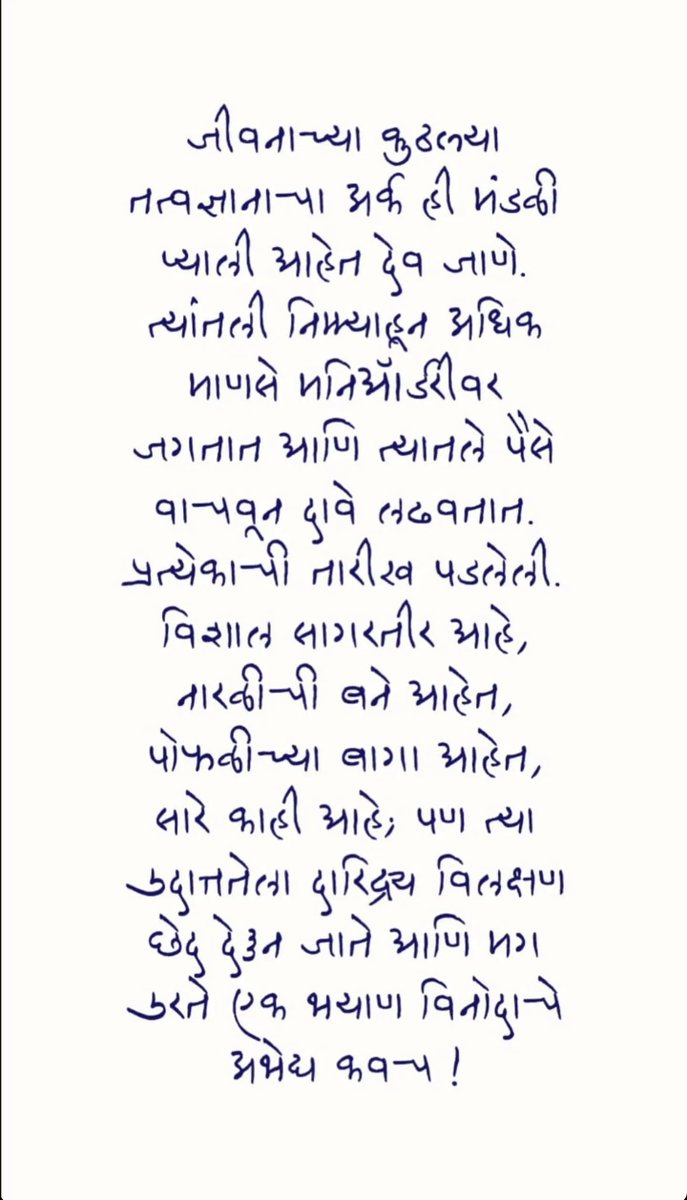 जीवनाच्या कुठल्या
तत्वज्ञानाचा अर्क ही मंडळी
प्याली आहेत देव जाणे.
त्यांतली निम्म्याहून अधिक
माणसे मनिऑर्डरीवर
जगतात आणि त्यातले पैसे
वाचवून दावे लढवतात.
प्रत्येकाची तारीख पडलेली.
विशाल सागरतीर आहे,
नारळीची बने आहेत,
पोफळीच्या बागा आहेत,
सारे काही आहे; पण त्या
उदात्ततेला दारिद्र्य विलक्षण
छेद देऊन जाते आणि मग
उरते एक भयाण विनोदाचे
अभेद्य कवच !